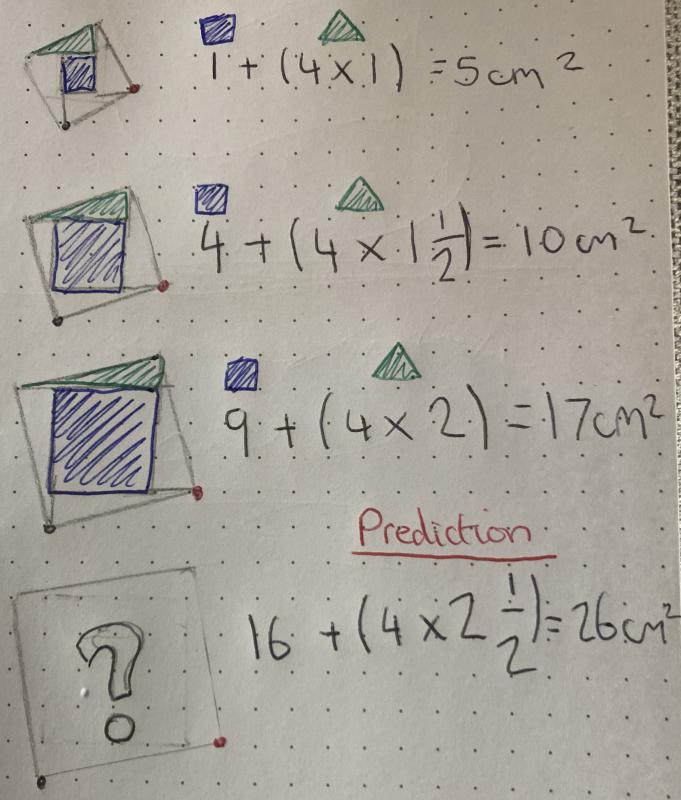 1 + (4 × 1) = 5cm²
4 + (4 × 1 1/2) = 10cm²
9 + (4 × 2) = 17cm²
Prediction
?
16 + (4 × 2 1/2) = 26cm²